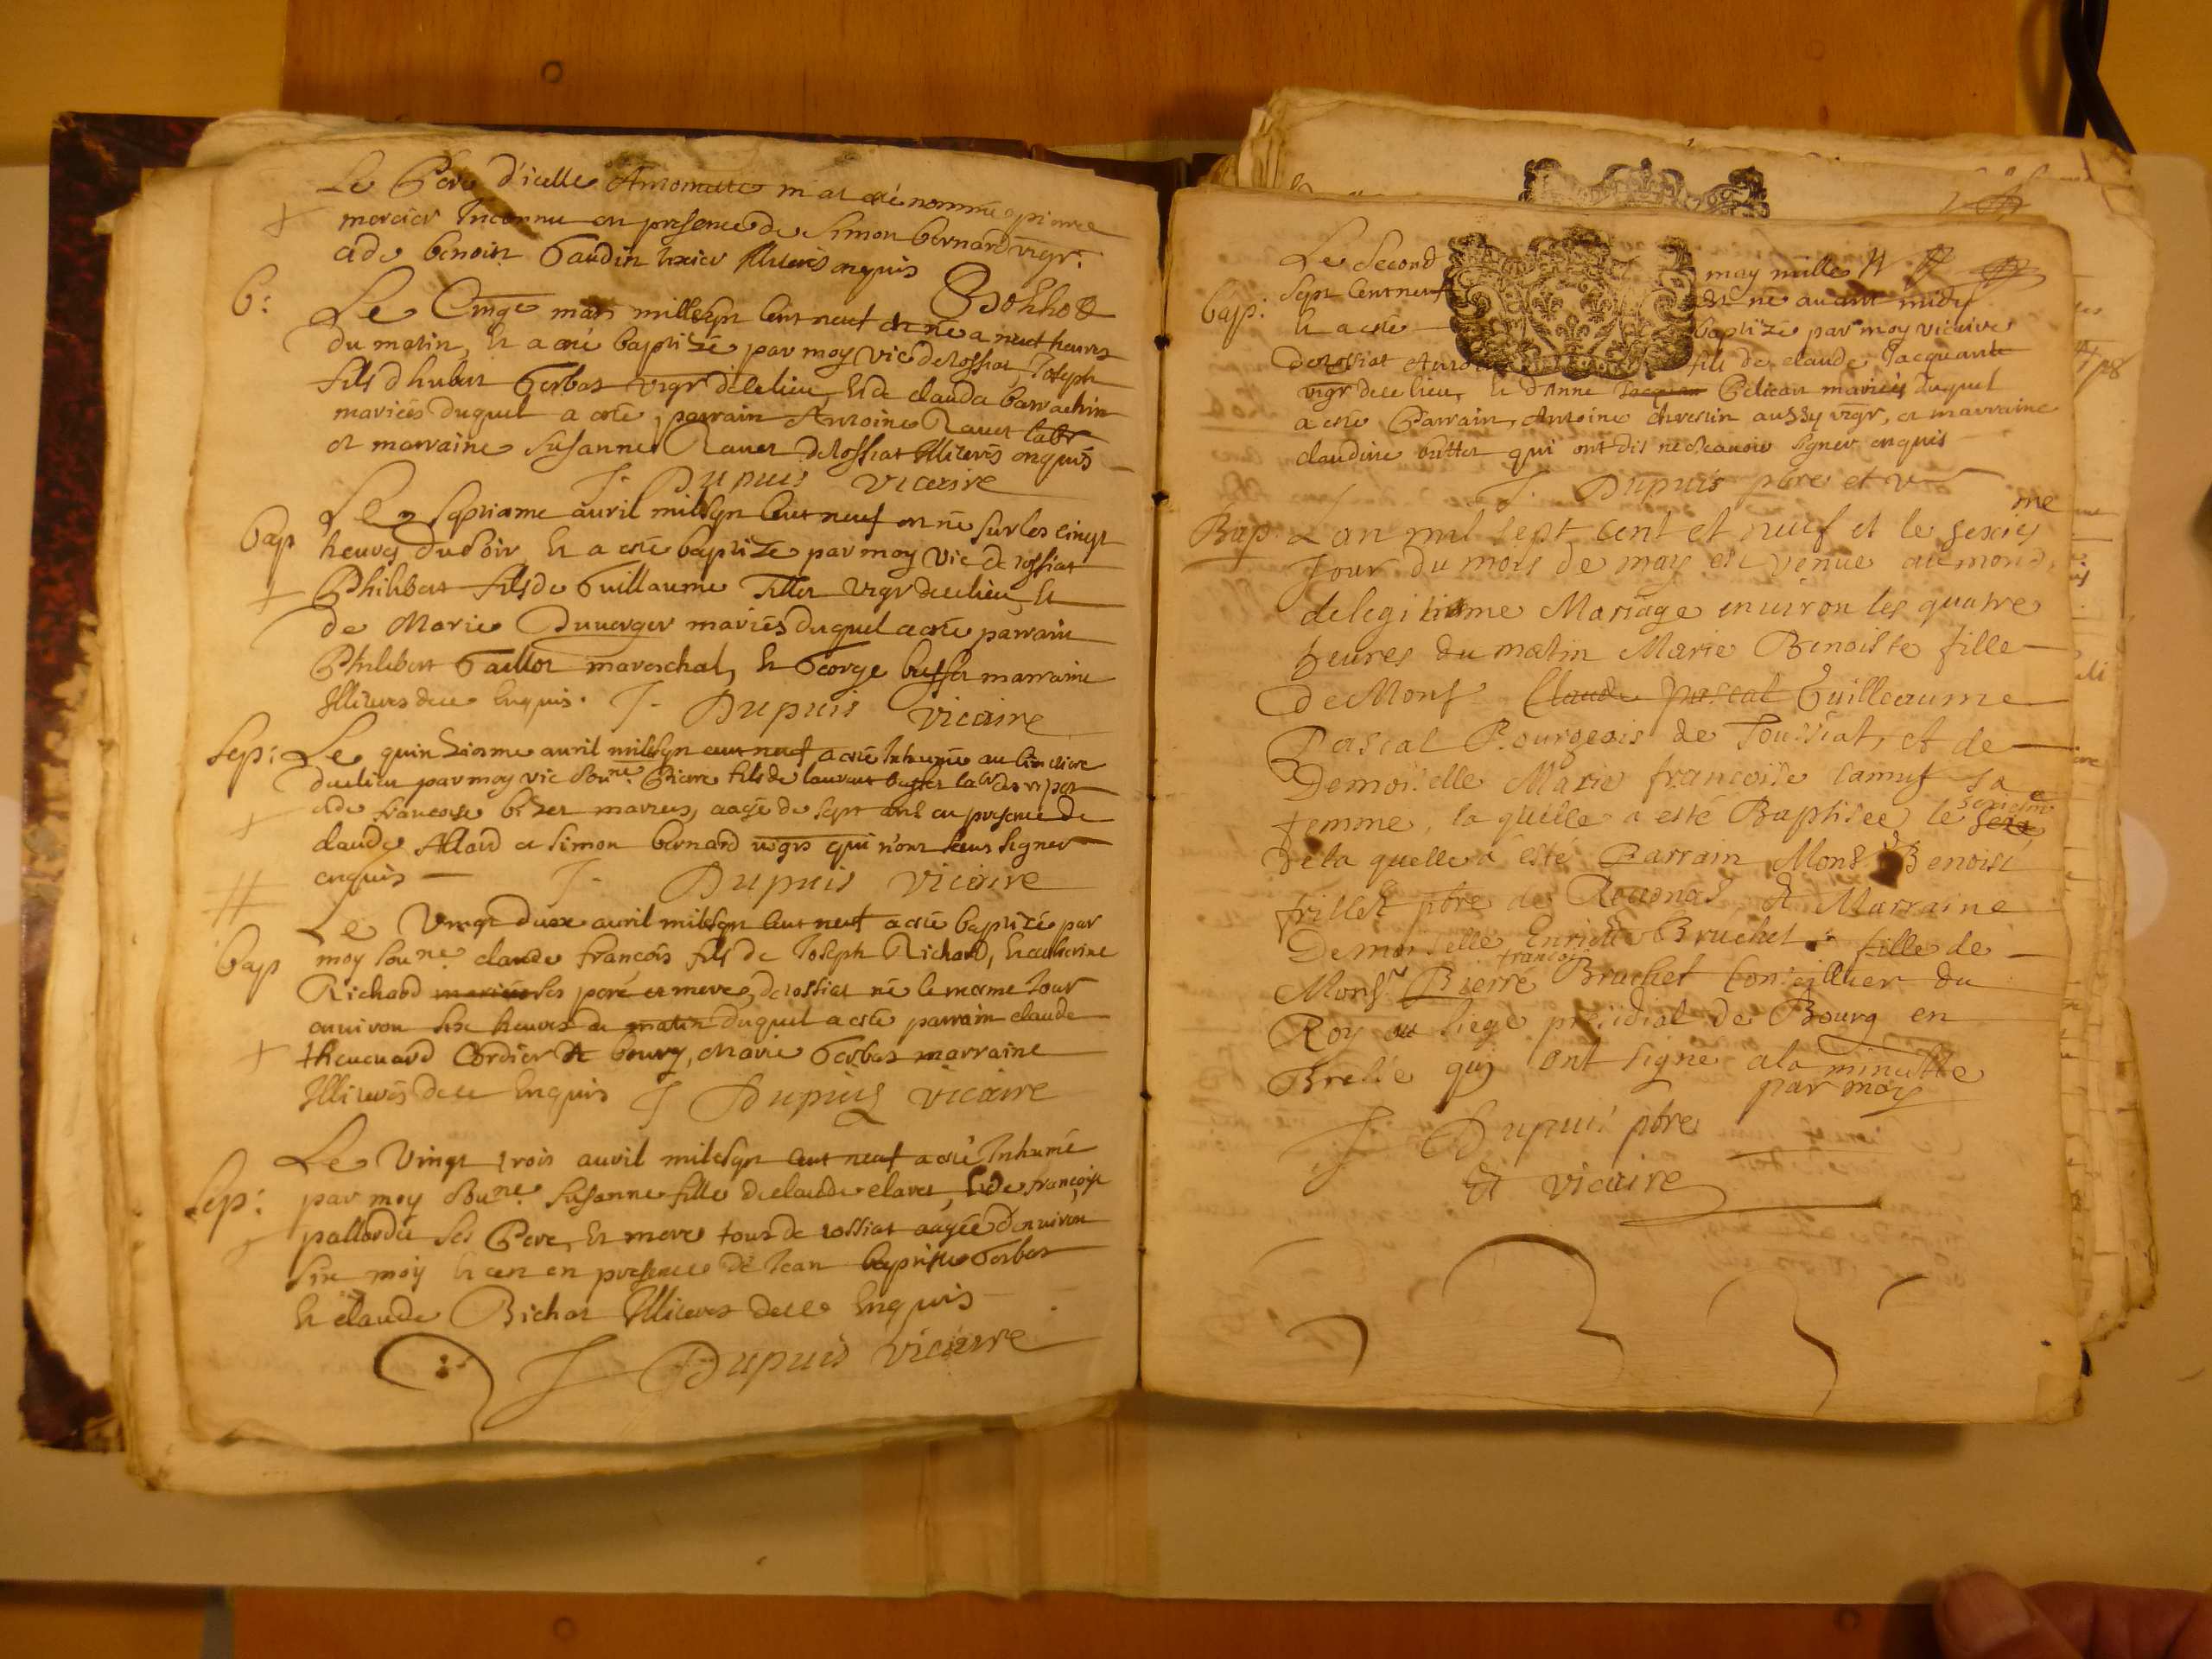 Le Pere d'icelle Antoinette m'at esté nommé pierre
mercier Inconnu en presence de Simon bernard vigr.
& de benoist Gaudin texier Illiterés enquis
B:
Le Cinqe mars mille sept Cent neuf est né a neuf heures
du matin, Et a esté baptizé par moy vic de rossiat, Joseph
fils d'hubert Gerbas vigr de ce lieu, Et de clauda barrachin
mariés duquel a esté parrain Antoine Ravet labr
et marraine Susanne Ravet de rossiat Illiterés enquis
J. Dupuis vicaire
bap
Le Septiame avril mil sept Cent neuf est né sur les cinqt
heures du soir Et a esté baptizé par moy vic de rossiat
Philibert fils de Guillaume Tillet vigr de ce lieu, Et
de Marie Duverger mariés duquel a esté parrain
Philibert Gaillot mareschal, Et George buffet marraine
Illiterés de ce Enquis. J. Dupuis vicaire
Sep:
Le quinziame avril mil sept cent neuf a esté Inhumé au Cimetiere
du lieu par moy vic Soune Pierre fils de laurent
& de francoise mariés, aagé de sept ans en presence de
claude Allard et Simon bernard vigrs qui n'ont sceus signer
enquis J. Dupuis vicaire
bap
Le Vingt duex avril mil sept Cent neuf a esté baptizé par
moy soune claude françois fils de Joseph Richard, Et catherine
Richard mariés ses pere et mere, de rossiat né le mesme Jour
environ six heures de matin duquel a esté parrain claude
thevenard Cordier de bourg, Marie Gerbas marraine
Illiterés de ce Enquis J Dupuis vicaire
Sep:
Le Vingt trois avril mil sept Cent neuf a esté Inhumé
par moy soune Susanne fille de claude claret, Et de françoise
pallordet ses Pere, Et mere tous de rossiat aagée d'environ
Six moy Et ce en presence de Jean baptiste Gerbas
Et claude Richar Illiteres de ce Enquis
J Dupuis vicaire
bap:
Le Second may mille
Sept Cent neuf est né avant midy
Et a esté baptizé par moy vicaire
de rossiat fils de claude Jacquand
vigr de ce lieu, Et d'Anne Pelican mariés duquel
a esté Parrain, Antoine chrestin aussy vigr, et marraine
claudine buffet qui ont dit ne scavoir signer enquis
J. Dupuis ptre et v
Bap.
L'an mil sept cent et neuf et le sexieme
Jour du mois de may est venue au monde
de legitime Mariage environ les quatre
heures du matin Marie Benoiste fille
de Monsr Claude pascal Guilleaume
Pascal Bourgeois de Toussiat, et de
Demoiselle Marie françoise camus sa
femme, la quelle a esté Baptisee le sexieme
de la quelle a esté Parrain Monsr Benoist
frillet ptre de Revonas & Marraine
Demoiselle Enriette Bruchet fille de
françois
Monsr Pierre Bruchet Conseillier du
Roy au siege presidial de Bourg en
Bresse qui ont signe a la minutte
par moy
J Dupuis ptre
Et vicaire